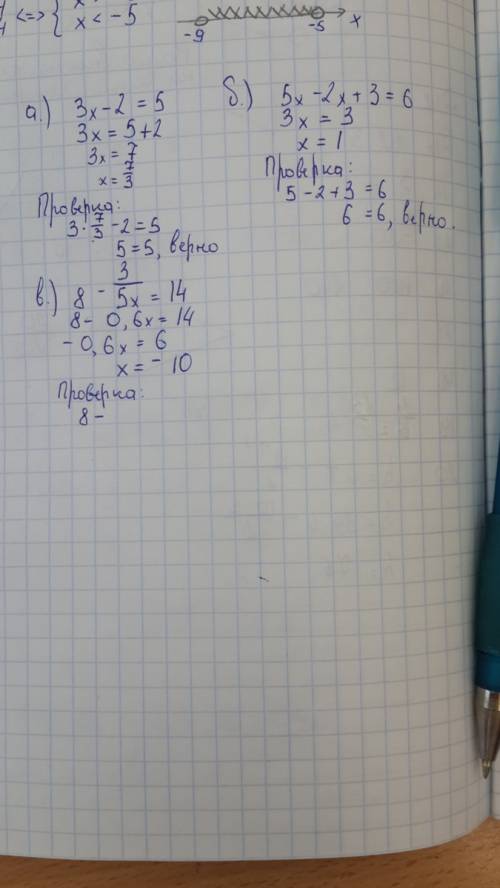 <=> { x < -5
-9 -5 x
а.) 3x - 2 = 5
3x = 5+2
3x = 7
x = 7/3
Проверка:
3 · 7/3 - 2 = 5
5 = 5, верно
б.) 5x - 2x + 3 = 6
3x = 3
x = 1
Проверка:
5 - 2 + 3 = 6
6 = 6, верно.
в.) 8 - 3/5x = 14
8 - 0,6x = 14
- 0,6x = 6
x = - 10
Проверка:
8 -